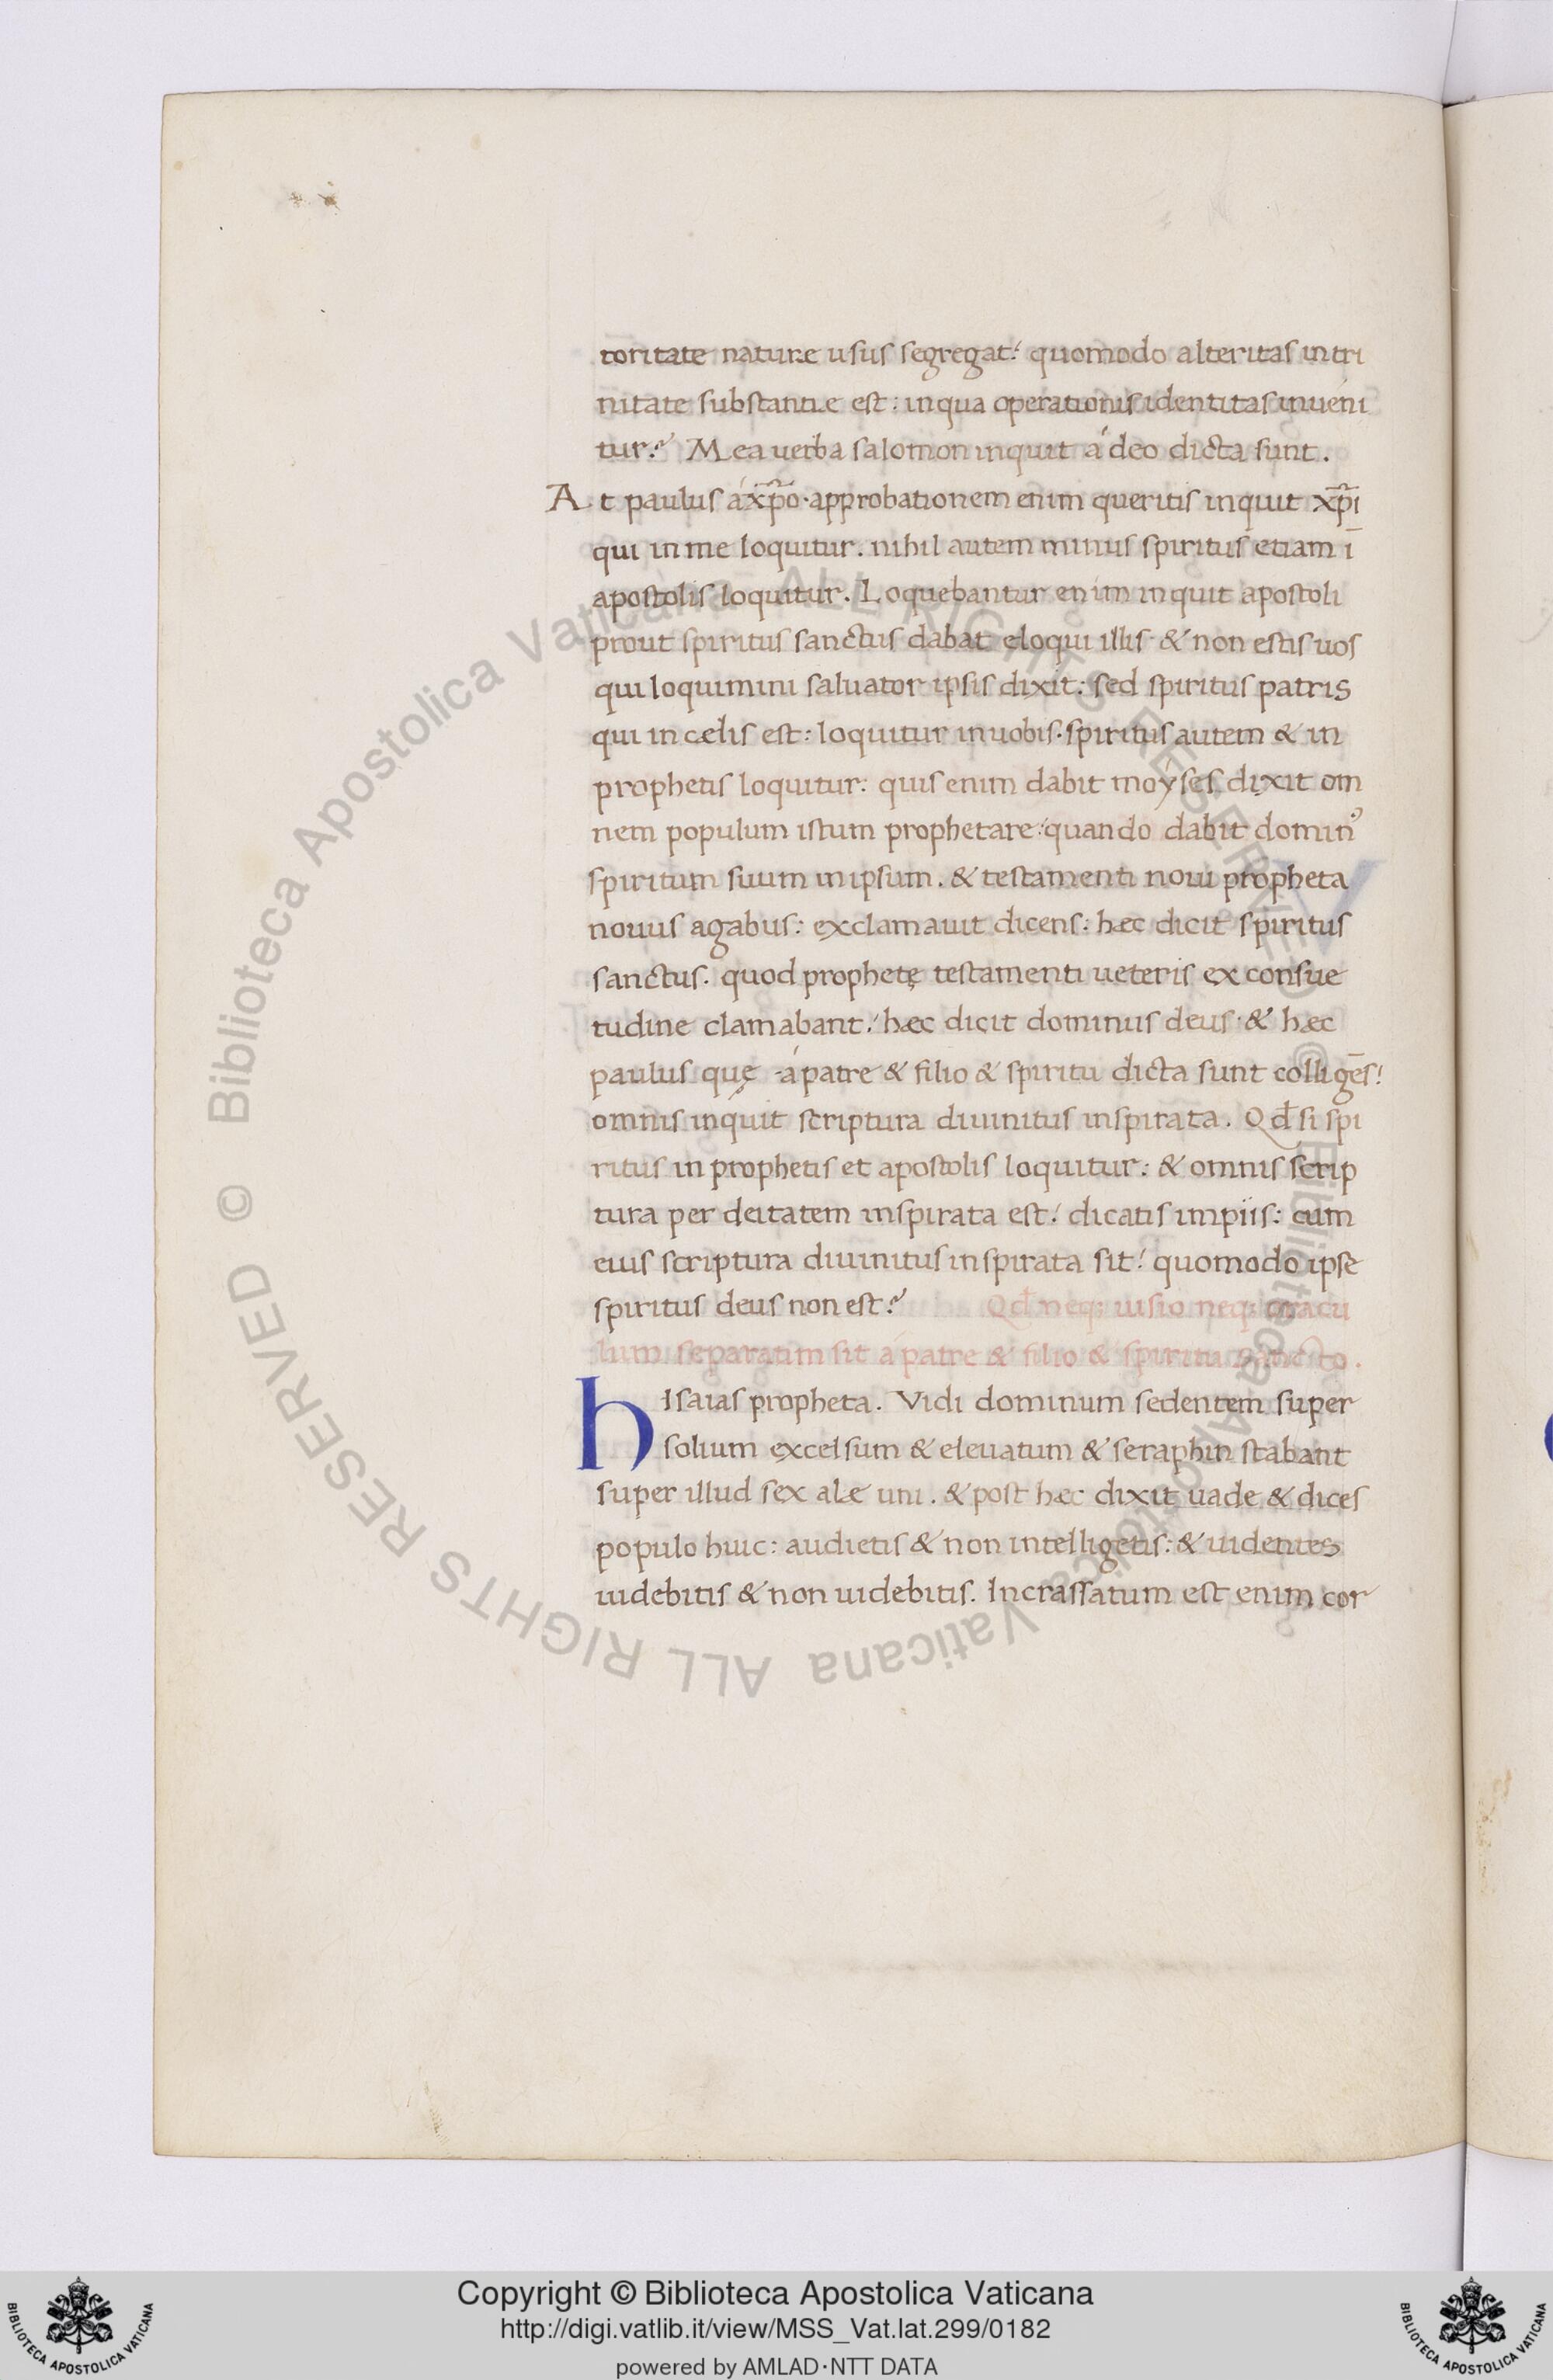 toritate naturæ usus segregat! quomodo alteritas in tri
nitate substantiæ est: in qua operationis identitas inueni
tur? Mea uerba salomon inquit á deo dicta sunt.
At paulus á xp̄o. approbationem enim queritis inquit xp̄i
qui in me loquitur. nihil autem minus spiritus etiam ī
apostolis loquitur. Loquebantur enim inquit apostoli
prout spiritus sanctus dabat eloqui illis. & non estis uos
qui loquimini saluator ipsis dixit: sed spiritus patris
qui in cęlis est: loquitur in uobis. spiritus autem & in
prophetis loquitur: quis enim dabit moyses dixit om
nem populum istum prophetare: quando dabit dominꝰ
spiritum suum in ipsum. & testamenti noui propheta
nouus agabus: exclamauit dicens: hæc dicit spiritus
sanctus. quod prophetę testamenti ueteris ex consue
tudine clamabant! hæc dicit dominus deus. & hæc
paulus quę á patre & filio & spiritu dicta sunt colligēs!
omnis inquit scriptura diuinitus inspirata. Qđ si spi
ritus in prophetis et apostolis loquitur: & omnis scrip
tura per deitatem inspirata est! dicatis impiis: cum
eius scriptura diuinitus inspirata sit! quomodo ipse
spiritus deus non est? Qđ neq; uisio neq; oracu
lum separatim sit á patre & filio & spiritu sancto.
hIsaias propheta. Vidi dominum sedentem super
solium excelsum & eleuatum & seraphin stabant
super illud sex alæ uni. & post hæc dixit uade & dices
populo huic: audietis & non intelligetis: & uidentes
uidebitis & non uidebitis. Incrassatum est enim cor
© Biblioteca Apostolica Vaticana ALL RIGHTS RESERVED © Biblioteca Apostolica Vaticana ALL RIGHTS RESERVED
Copyright © Biblioteca Apostolica Vaticana
http://digi.vatlib.it/view/MSS_Vat.lat.299/0182
powered by AMLAD·NTT DATA
BIBLIOTECA APOSTOLICA VATICANA
BIBLIOTECA APOSTOLICA VATICANA